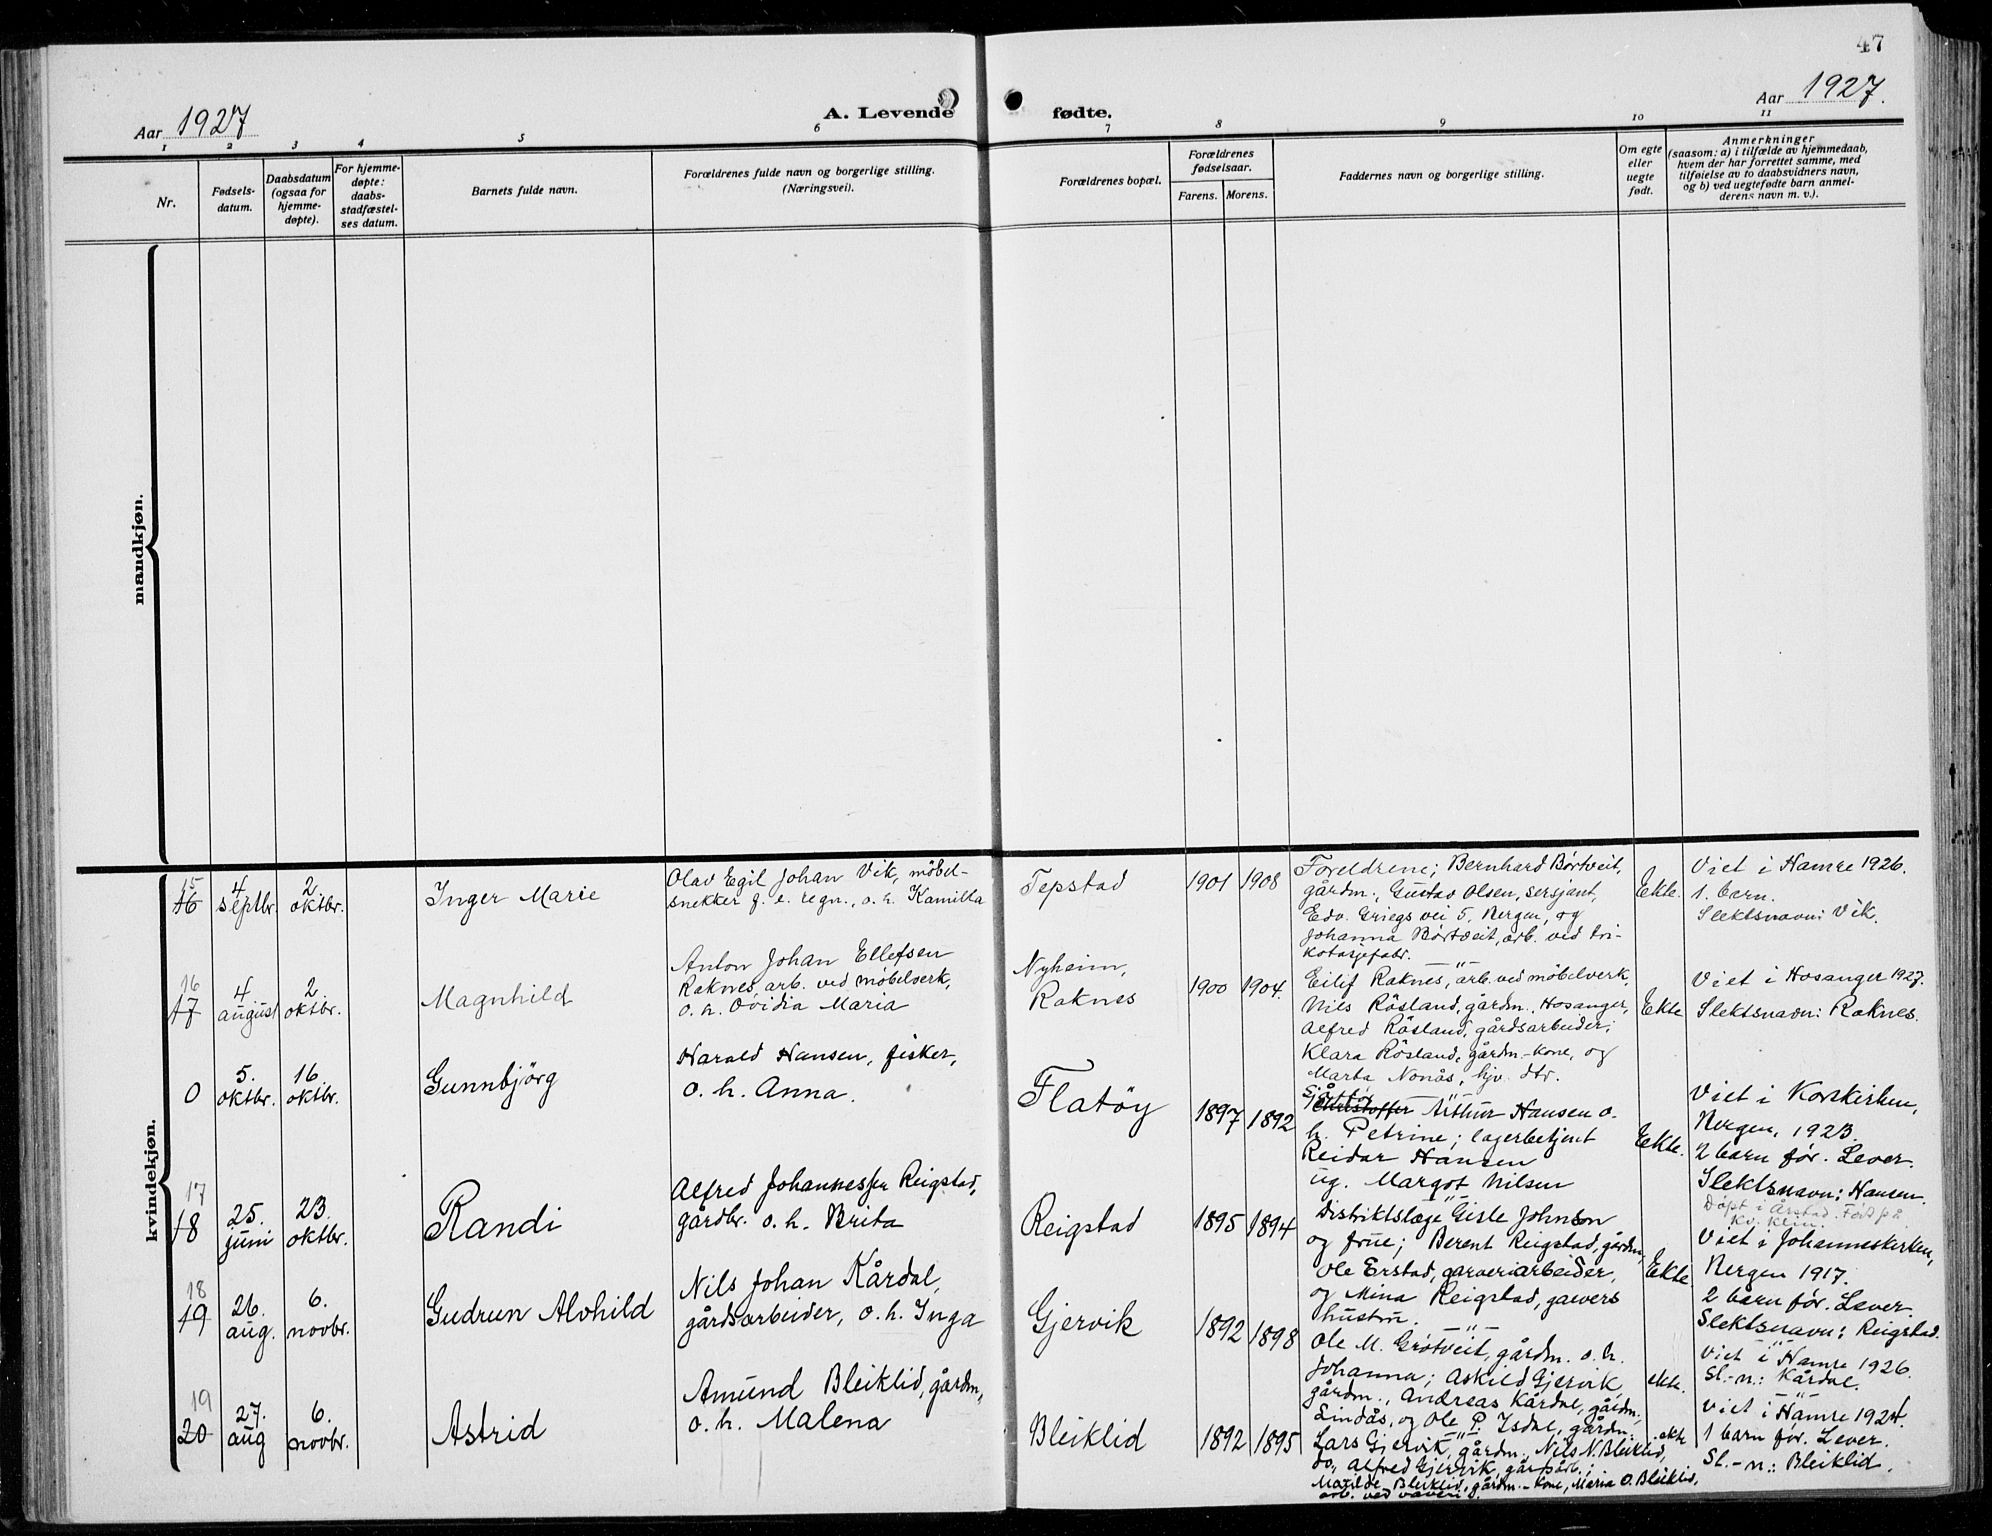 47
Aar 1927
A. Levende fødte.
Aar 1927.
1 2 3 4 5 6 7 8 9 10 11
Nr.
Fødsels-
datum.
Daabsdatum
(ogsaa for
hjemme-
døpte).
For hjemme-
døpte:
daabs-
stadfæstel-
ses datum.
Barnets fulde navn.
Forældrenes fulde navn og borgerlige stilling.
(Næringsvei).
Forældrenes bopæl.
Forældrenes
fødselsaar.
Farens. Morens.
Faddernes navn og borgerlige stilling.
Om egte
eller
uegte
født.
Anmerkninger
(saasom: a) i tilfælde av hjemmedaab,
hvem der har forrettet samme, med
tilføielse av to daabsvidners navn,
og b) ved uegtefødte barn anmel-
derens navn m. v.).
mandkjøn.
kvindekjøn.
15
16
4
septbr.
2.
oktbr.
Inger Marie
Olav Egil Johan Vik, möbel-
snekker f. e. regn., o. h. Kamilla
Tepstad
1901 1908
Foreldrene; Bernhard Børtveit,
gårdm., Gustav Olsen, sersjant,
Edv. Griegs vei 5, Bergen, og
Johanna Børtveit, arb. ved tri-
kotasjefabr.
Ekte.
Viet i Hamre 1926.
1. barn.
Slektsnavn: Vik.
16
17
4
august
2.
oktbr.
Magnhild
Anton Johan Ellefsen
Raknes, arb. ved möbelverk,
o. h. Ovidia Maria
Nyheim,
Raknes
1900 1904.
Eilif Raknes, arb. ved möbelverk,
Nils Rösland, gårdm., Hosanger,
Alfred Rösland, gårdsarbeider;
Klara Rösland, gårdm.-kone, og
Marta Nonås, hjv. dtr.
Ekte
Viet i Hosanger 1927.
Slektsnavn: Raknes.
0
5.
oktbr.
16.
oktbr.
Gunnbjörg
Harald Hansen, fisker,
o. h. Anna.
Flatöy
1897 1892
Arthur Hansen o.
h. Petrine; lagerbetjent
Reidar Hansen
ug. Margot Nilsen
Ekte.
Viet i Korskirken,
Bergen, 1923.
2 barn før. Lever.
Slektsnavn: Hansen.
Döpt i Årstad. Fört på
Kv. klin.
17
18
25.
juni
23.
oktbr.
Randi
Alfred Johannessen Reigstad,
gårdbr. o. h. Brita
Reigstad
1895 1894
Distriktslæge Gisle Johnson
og frue; Berent Reigstad, gårdm.,
Ole Erstad, garveriarbeider,
og Mina Reigstad, garvers
hustru.
Ekte
Viet i Johanneskirken,
Bergen 1917.
2 barn før. Lever.
Slektsnavn: Reigstad.
18
19
26.
aug.
6.
novbr.
Gudrun Alvhild
Nils Johan Kårdal,
gårdsarbeider, o. h. Inga
Gjervik
1892 1898
Ole M. Grötveit, gårdm. o. h.
Johanna; Askild Gjervik,
gårdm., Andreas Kårdal, gårdm.,
Lindås, og Ole P. Isdal, gårdm.
ekte.
Viet i Hamre 1926.
Sl.-n.: Kårdal.
19
20
27.
aug
6.
novbr.
Astrid
Amund Bleiklid, gårdm.,
o. h. Malena
Bleiklid
1892 1895
Lars Gjervik, gårdm., Nils N. Bleiklid,
do., Alfred Gjervik, gårdsarb.;
Matilde Bleiklid, gårdm.-kone, Maria O. Bleiklid,
arb. ved væveri.
ekte
Viet i Hamre 1924.
1 barn før. Lever.
Sl.-n.: Bleiklid.